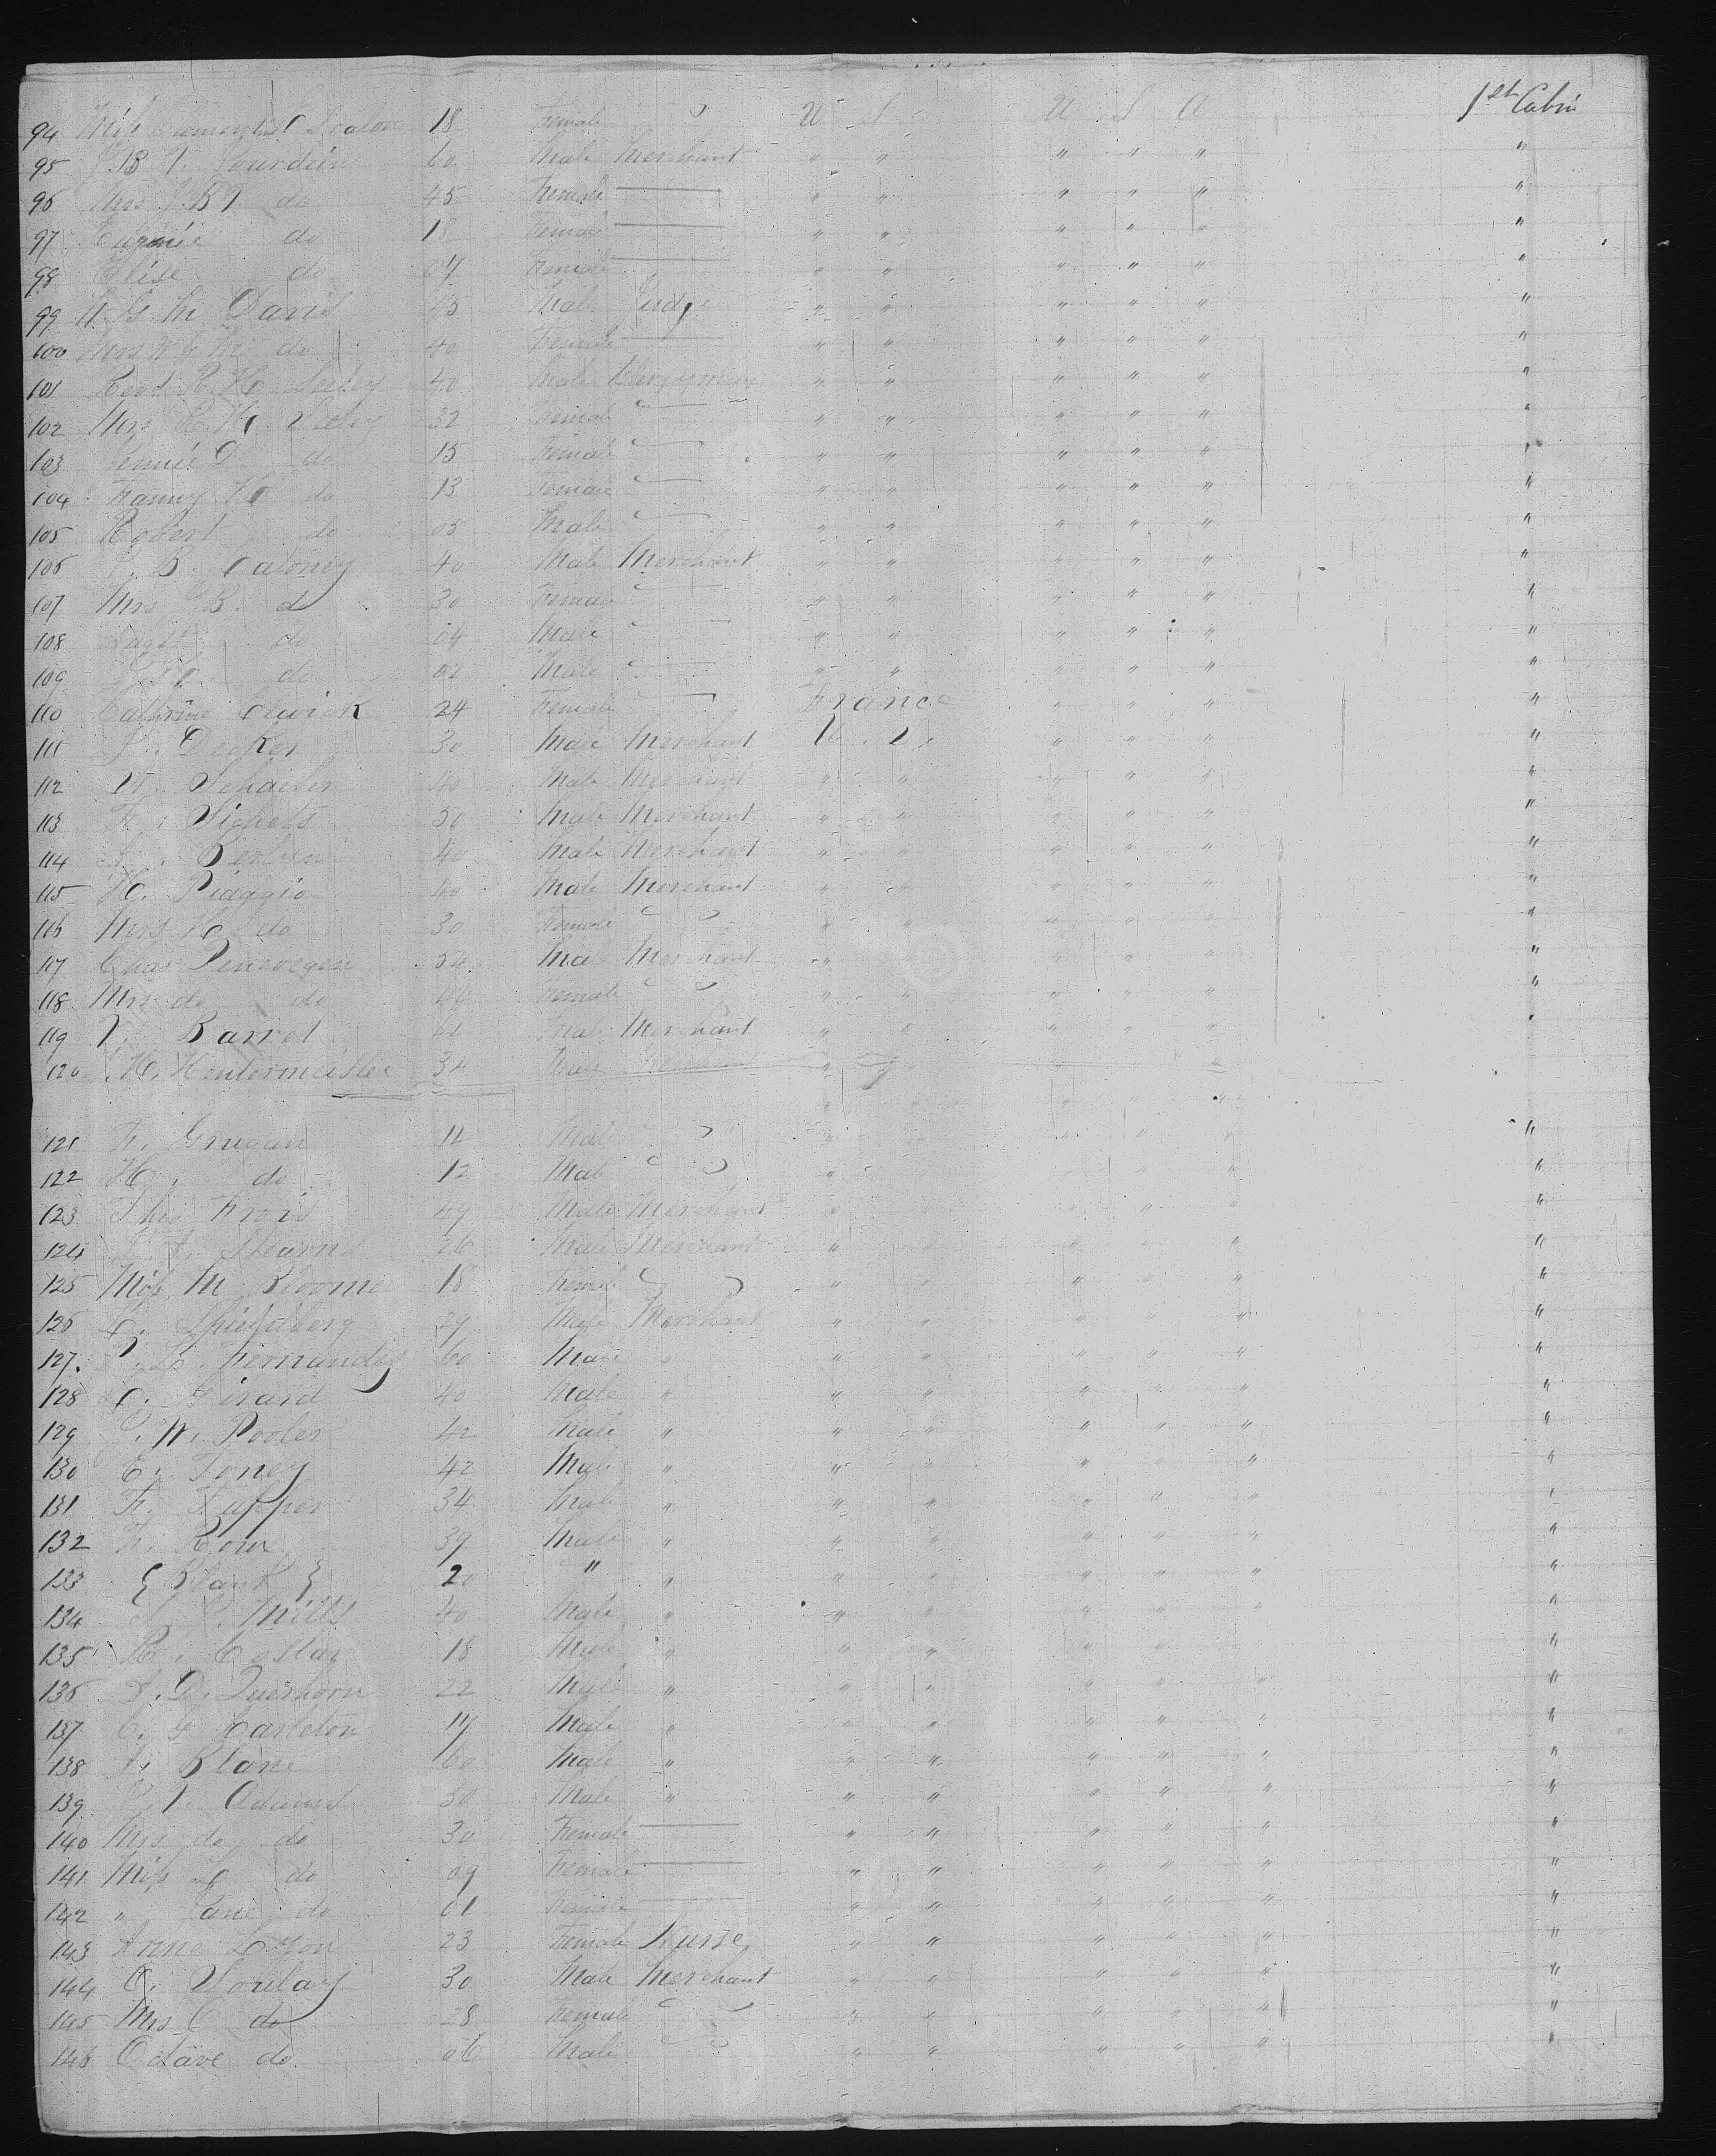 94 Miss 18 Female U S U S A 1st Cabin
95 J. B. Jourdein 60 Male Merchant " " " " " "
96 Mrs J. B. do 45 Female " " " " " "
97 Eugenie do 18 Female " " " " " "
98 Elise do 07 Female " " " " " "
99 W. G. M. Davis 45 Male Judge " " " " " "
100 Mrs W G M do 40 Female " " " " " "
101 Revd R. H. Seeley 40 Male Clergyman " " " " " "
102 Mrs R. H. Seeley 32 Female " " " " " "
103 Jennie D do 15 Female " " " " " "
104 Fanny H do 13 Female " " " " " "
105 Robert do 05 Male " " " " " "
106 J. B. Catoney 40 Male Merchant " " " " " "
107 Mrs J. B. do 30 Female " " " " " "
108 do 04 Male " " " " " "
109 do 02 Male " " " " " "
110 Cathrine 24 Female France " " " "
111 Decker 30 Male Merchant U. S. " " " "
112 Schaefer 40 Male Merchant " " " " " "
113 F. Sichels 50 Male Merchant " " " " " "
114 40 Male Merchant " " " " " "
115 H. Piaggio 40 Male Merchant " " " " " "
116 Mrs H do 30 Female " " " " " "
117 Chas 54 Male Merchant " " " " " "
118 Mrs do do 44 Female " " " " " "
119 Barret Male Merchant " " " " " "
120 H. Hentermeister 34 Male Merchant "
121 F. Grugan 11 Male " " " " " "
122 H. do 12 Male " " " " "
123 Theo Frois 49 Male Merchant " " " " "
124 Stearns 26 Male Merchant " " " " " "
125 Miss M Bloomer 18 Female " " " " " "
126 Spieldberg 29 Male Merchant " " " " " "
127. Fernandez 60 Male " " " " " " "
128 Girard 40 Male " " " " " " "
129 W. Pooler 42 Male " " " " " " "
130 E. Foney 42 Male " " " " " " "
131 F. Kupper 34 Male " " " " " " "
132 F. Roux 39 Male " " " " " " "
133 { Blank } 20 " " " " " " " "
134 Mills 40 Male " " " " " " "
135 R. Costar 18 Male " " " " " " "
136 D. 22 Male " " " " " " "
137 C. G Carleton 17 Male " " " " " " "
138 Blanc 60 Male " " " " " " "
139 Adams 30 Male " " " " " " "
140 Mrs do do 30 Female " " " " " "
141 Miss L do 09 Female " " " " " "
142 " Jane do 01 Female " " " " " "
143 Anne Lyon 23 Female Nurse " " " " " "
144 O. Soulay 30 Male Merchant " " " " " "
145 Mrs O do 28 Female " " " " " "
146 Octave do 06 Male " " " " " "